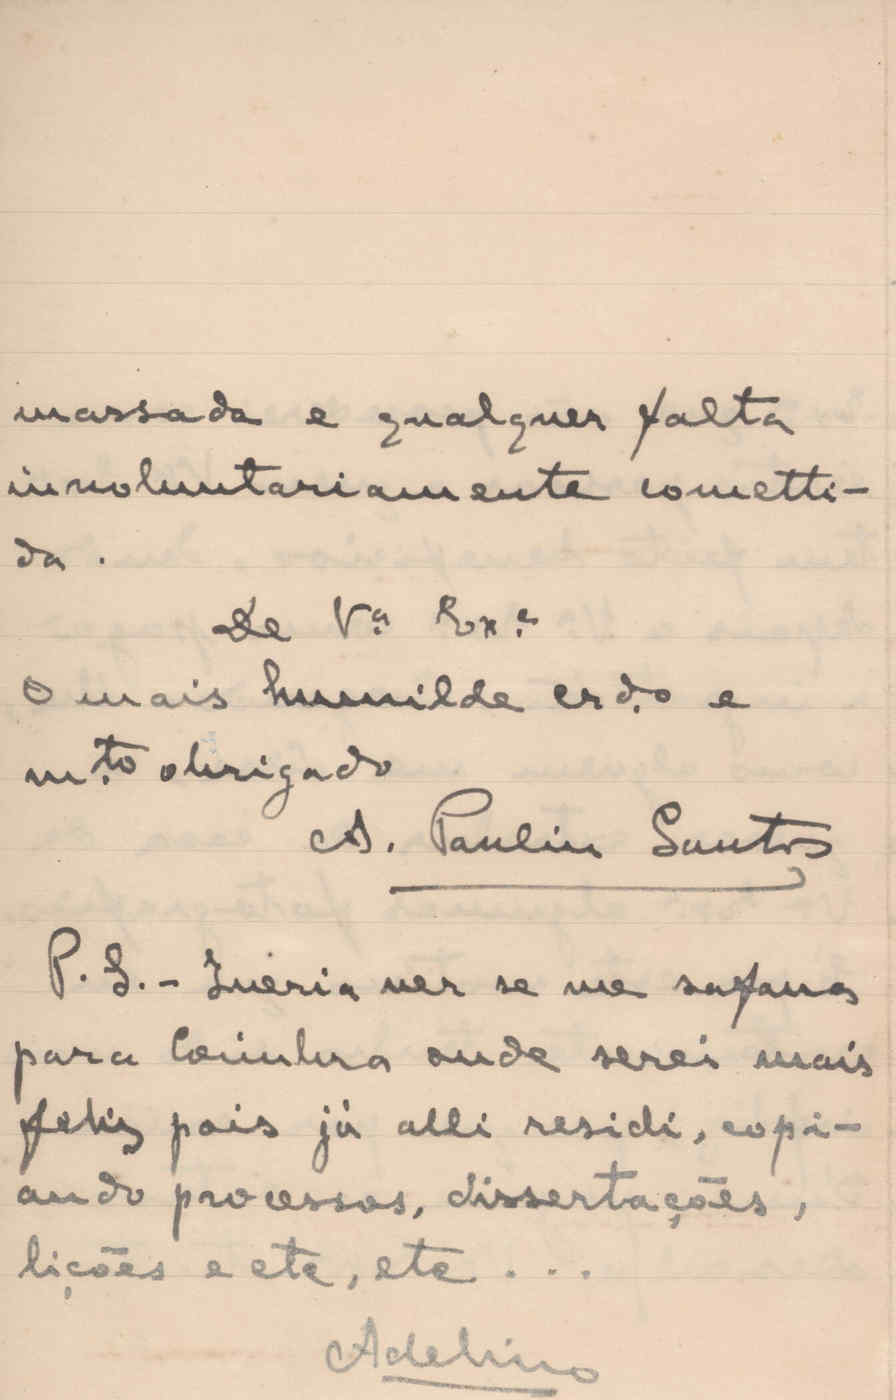 massada e qualquer falta
involuntariamente cometti-
da.
De Vª. Exª.
O mais humilde crd.o e
m.to obrigado
A. Paulin Santos
P. S. - Queria ver se me safava
para Coimbra onde serei mais
feliz pois já alli residi, copi-
ando processos, dissertações,
lições e etc, etc...
Adelino